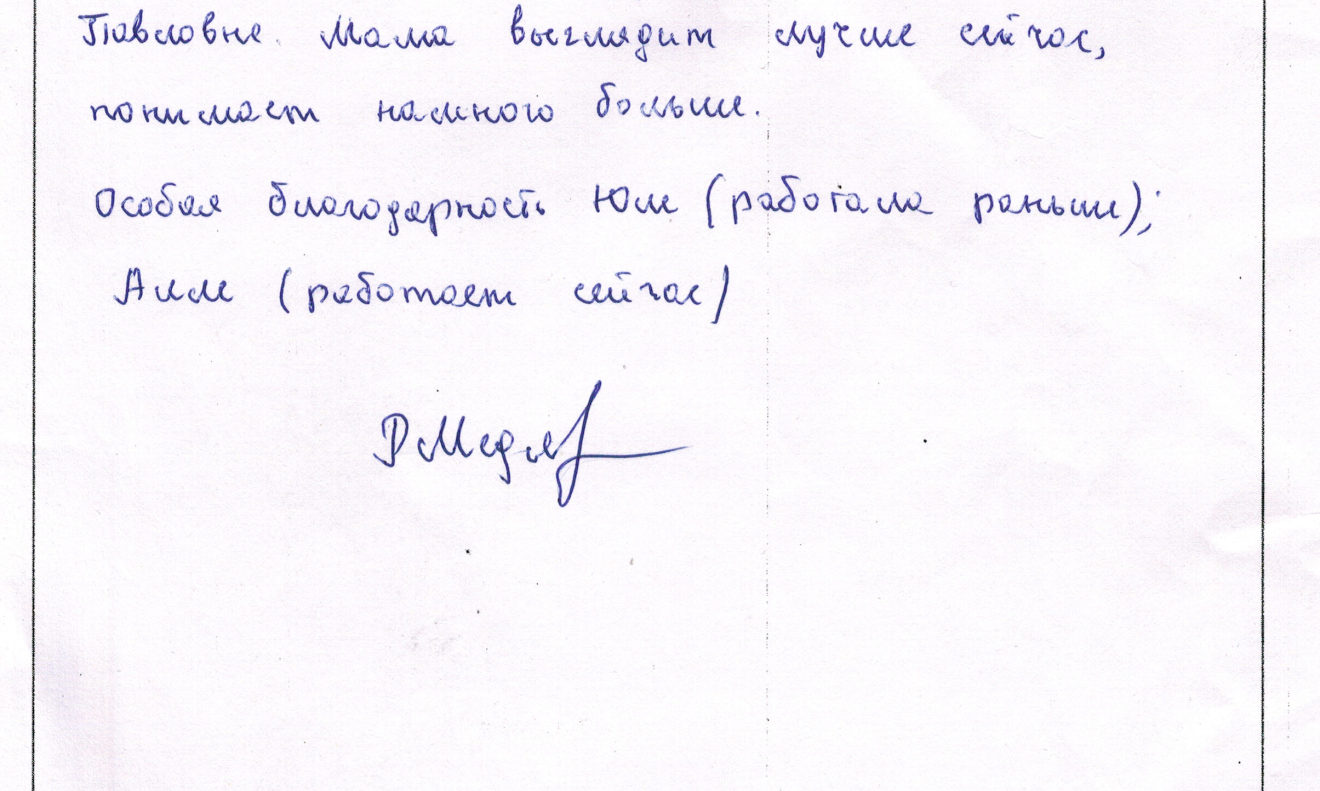 Павловне. Мама выглядит лучше сейчас,
понимает намного больше.
Особая благодарность Юле (работала раньше);
(работает сейчас)